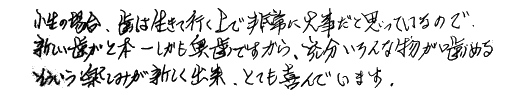 小生の場合、歯は生きて行く上で非常に大事だと思っているので、
新しい歯が上下一しかも奥歯ですから、充分いろんな物が噛める
という楽しみが新しく出来、とても喜んでいます。